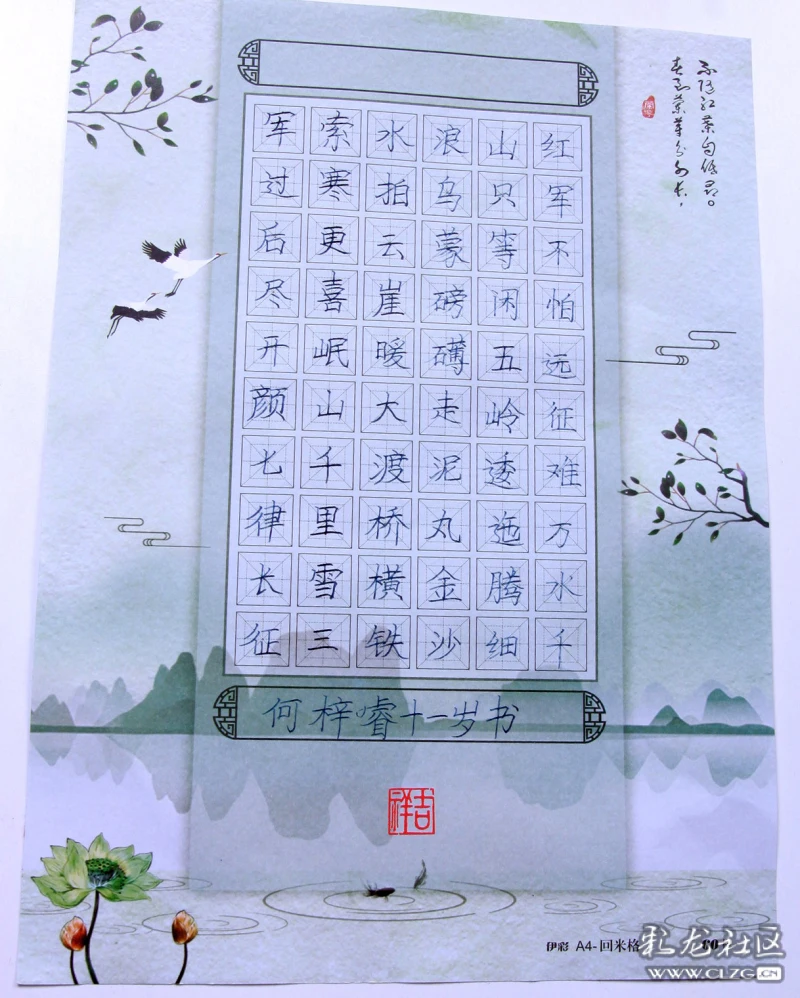 不随红叶自低昂。
春到兰芽分外长，
红军不怕远征难万水千
山只等闲五岭逶迤腾细
浪乌蒙磅礴走泥丸金沙
水拍云崖暖大渡桥横铁
索寒更喜岷山千里雪三
军过后尽开颜七律长征
何梓十一岁书
吉祥
伊彩 A4-回米格
彩龙社区
www.CLZG.CN